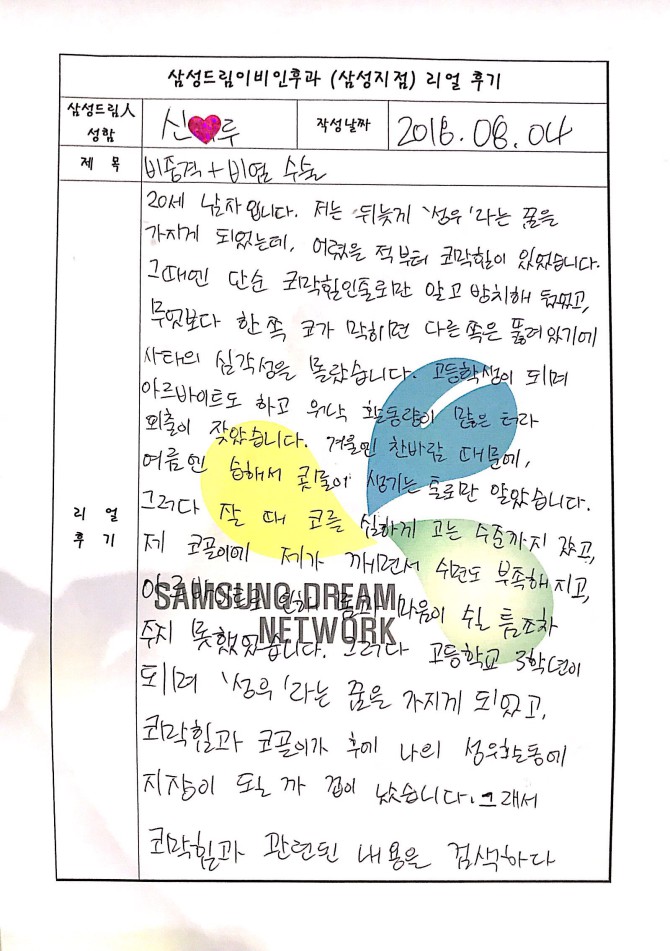 삼성드림이비인후과 (삼성지점) 리얼 후기
삼성드림人 성함
신 루
작성날짜
2018.08.04
제 목
비중격+비염 수술
리 얼 후 기
20세 남자입니다. 저는 뒤늦게 '성우'라는 꿈을
가지게 되었는데, 어렸을 적부터 코막힘이 있었습니다.
그때엔 단순 코막힘인줄로만 알고 방치해 뒀었고,
무엇보다 한 쪽 코가 막히면 다른 쪽은 뚫려있기에
사태의 심각성을 몰랐습니다. 고등학생이 되며
아르바이트도 하고 워낙 활동량이 많은 터라
외출이 잦았습니다. 겨울엔 찬바람 때문에,
여름엔 습해서 콧물이 생기는 줄로만 알았습니다.
그러다 잘 때 코를 심하게 고는 수준까지 갔고,
제 코골이에 제가 깨면서 수면도 부족해지고,
아르바이트로 인해 몸과 마음이 쉴 틈조차
주지 못했었습니다. 그러다 고등학교 3학년이
되며 '성우'라는 꿈을 가지게 되었고,
코막힘과 코골이가 후에 나의 성우활동에
지장이 될까 겁이 났습니다. 그래서
코막힘과 관련된 내용을 검색하다
SAMSUNG DREAM
NETWORK